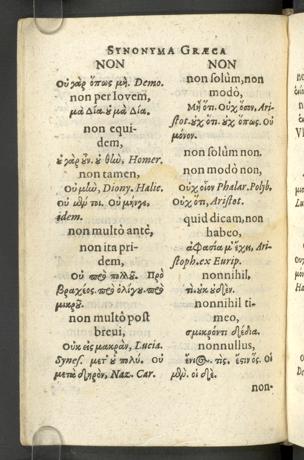 SYNONYMA GRÆCA
NON
Οὐ γὰρ ὅπως μή. Demo.
non per Iovem,
μὰ Δία. ȣ μὰ Δία.
non equi-
dem,
Homer.
non tamen,
Οὐ μὴν, Diony. Halic.
Οὐ μὴν τοι. Οὐ μήν γε,
idem.
non multò antè,
non ita pri-
dem,
Οὐ πρὸ πολλοῦ. Πρὸ
βραχέος. πρὸ ὀλίγου. πρὸ
μικροῦ.
non multò post
brevi,
Οὐκ εἰς μακρὰν, Lucia.
Synes. μετ' ȣ πολύ. Οὐ
μετὰ Naz. Car.
NON
non solùm, non
modò,
Μὴ ὅτι. Οὐχ ὅσον, Ari-
stot. ȣχ ὅτι. ȣχ ὅπως. Οὐ
μόνον.
non solùm non.
non modò non,
Οὐχ οἷον Phalar. Polyb.
Οὐχ ὅτι, Aristot.
quid dicam, non
habeo,
ἀφασία μ' ἔχει, Ari-
stoph. ex Eurip.
nonnihil,
nonnihil ti-
meo,
nonnullus,
ἔνιος. τὶς. ἔστιν ὅς. Οἱ
μὲν. οἱ δὲ.
non-